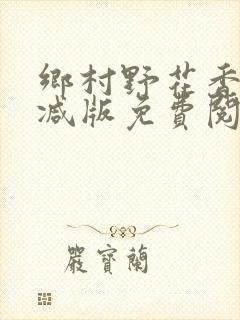 鄉村野花香
减版免費閱
嚴寶蘭